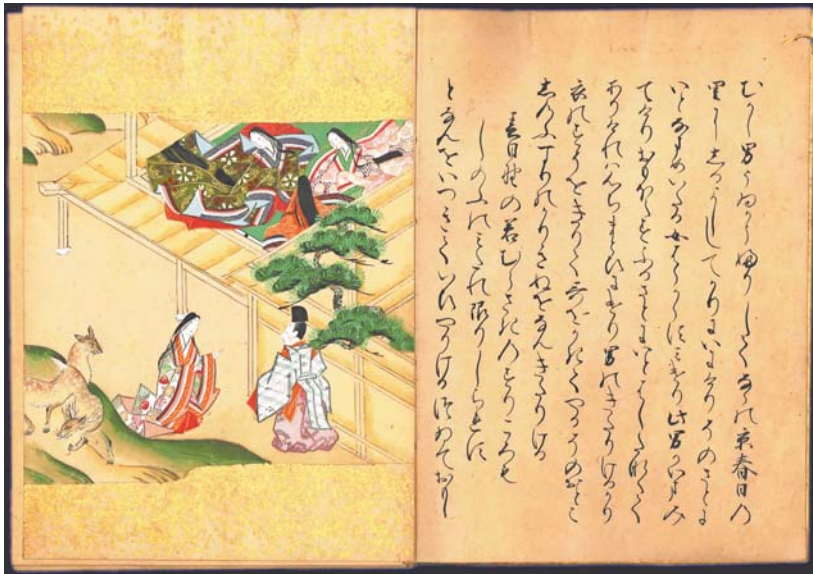 むかし男うゐかうふりしてならの京春日の
里にしるよしゝてかりにいにけりそのさとに
いとなまめいたる女はらからすみけり此男かいまみ
てけりおもほえすふるさとにいとはしたなくて
ありけれはこゝちまとひにけり男のきたりけるかり
衣のすそをきりて哥をかきてやるそのおとこ
しのふすりのかりきぬをなんきたりける
春日野の若むらさきのすりころも
しのふのみたれ限りしられす
となんをいつきていひやりけるつゐておもし